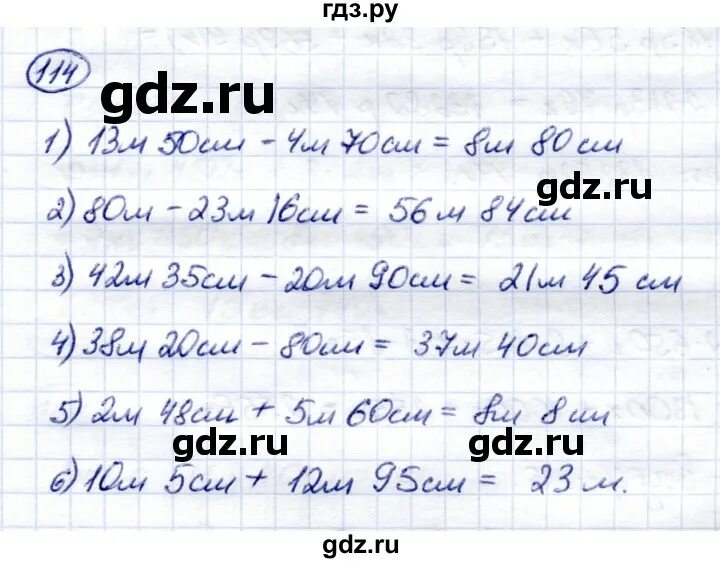 гдз.ру
114
gdz.ru
1) 13м 50см - 4м 70см = 8м 80см
gdz.ru
2) 80м - 23м 16см = 56м 84см
3) 42м 35см - 20м 90см = 21м 45см
4) 38м 20см - 80см = 37м 40см
5) 2м 48см + 5м 60см = 8м 8см
gdz.ru gdz.ru
6) 10м 5см + 12м 95см = 23м.
gdz.ru